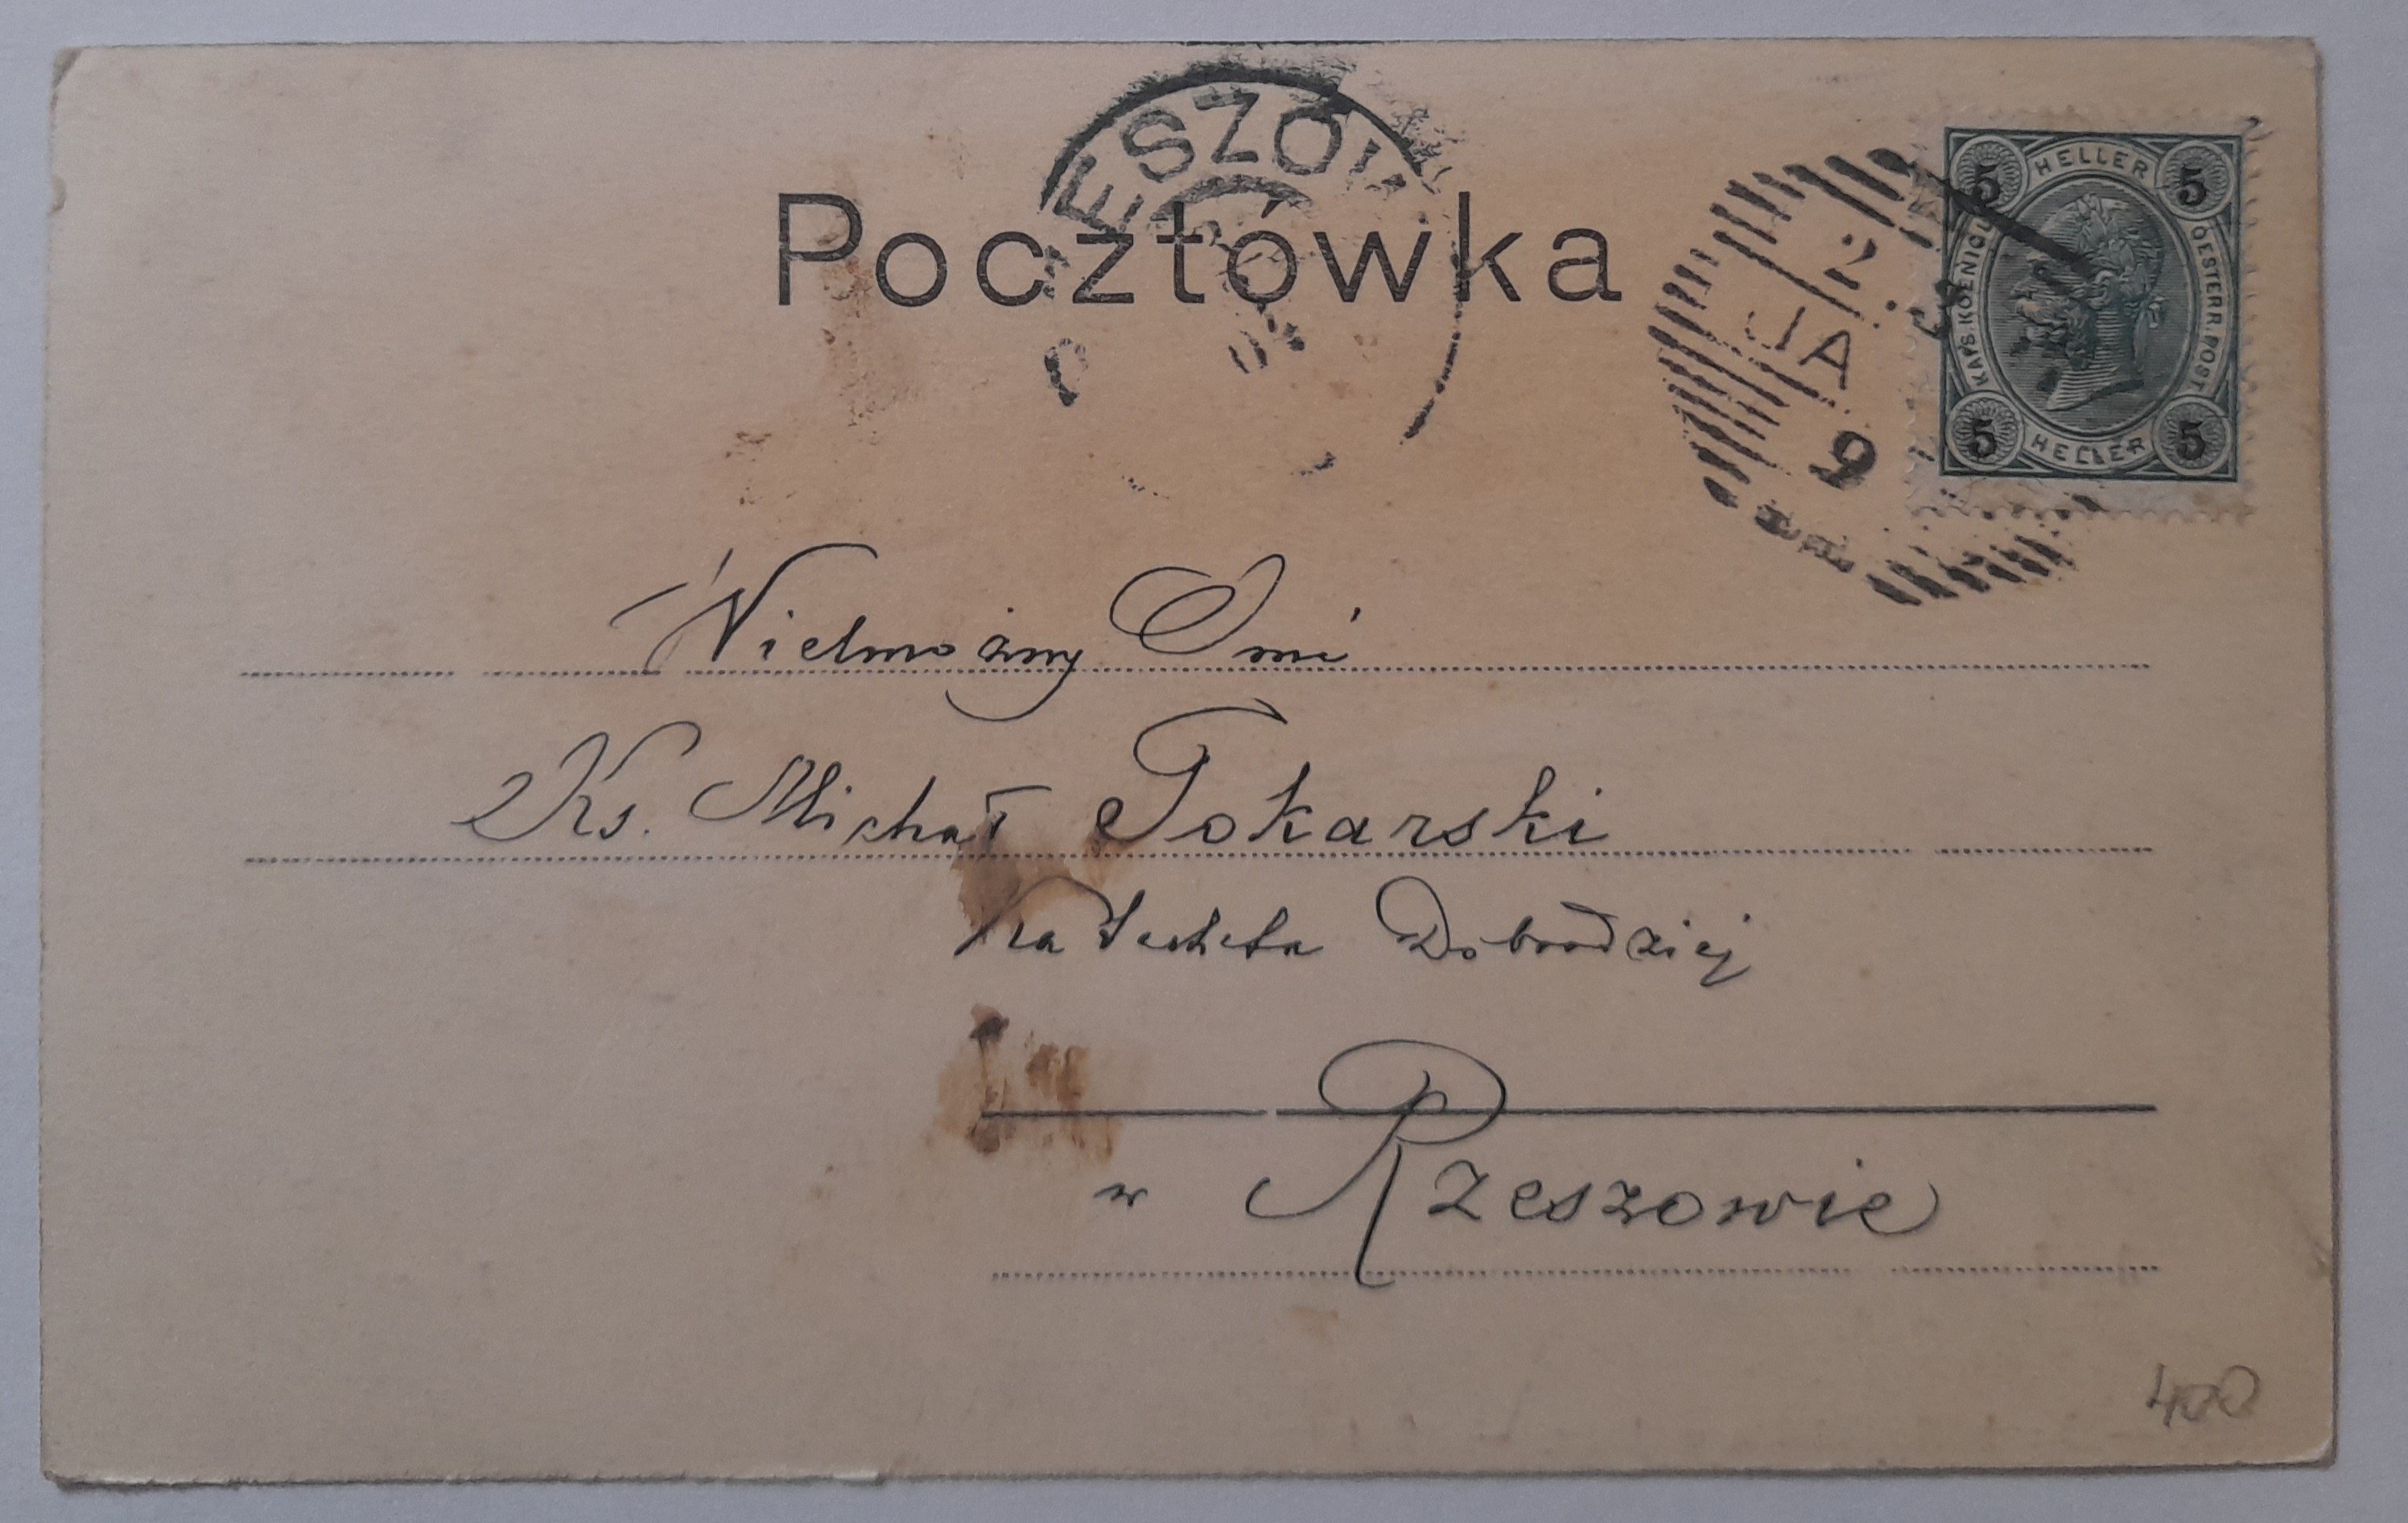 ESZÓW
Pocztówka
5 HELLER 5
KAIS. KOENIGL. OESTERR. POST.
5 HELLER 5
Wielmożny Jmć
Ks. Michał Tokarski
Katecheta Dobrodziej
w Rzeszowie
400